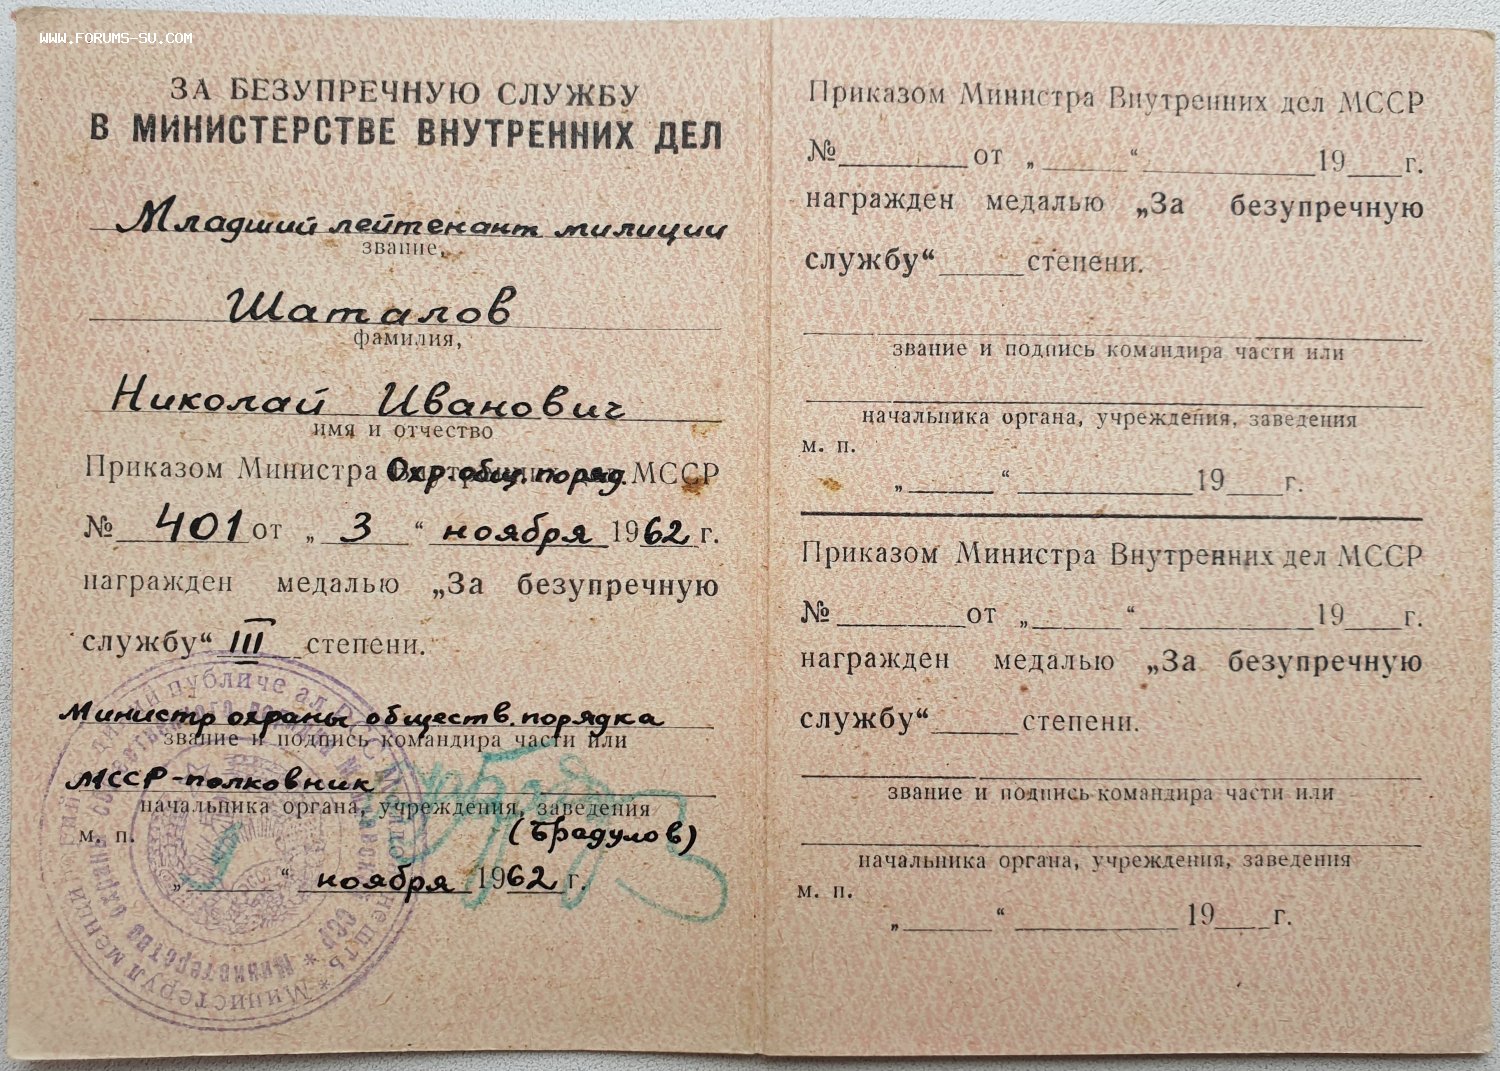 WWW.FORUMS-SU.COM
ЗА БЕЗУПРЕЧНУЮ СЛУЖБУ
В МИНИСТЕРСТВЕ ВНУТРЕННИХ ДЕЛ
Младший лейтенант милиции
звание,
Шаталов
фамилия,
Николай Иванович
имя и отчество
Приказом Министра Охр. общ. поряд. МССР
№ 401 от „ 3 “ ноября 1962 г.
награжден медалью „За безупречную
службу“ III степени.
Министр охраны обществ. порядка
звание и подпись командира части или
МССР-полковник
начальника органа, учреждения, заведения
(Брадулов)
м. п.
„ “ ноября 1962 г.
Министерство охраны общественного порядка Молдавской ССР
Приказом Министра Внутренних дел МССР
№ от „ “ 19 г.
награжден медалью „За безупречную
службу“ степени.
звание и подпись командира части или
начальника органа, учреждения, заведения
м. п.
„ “ 19 г.
Приказом Министра Внутренних дел МССР
№ от „ “ 19 г.
награжден медалью „За безупречную
службу“ степени.
звание и подпись командира части или
начальника органа, учреждения, заведения
м. п.
„ “ 19 г.